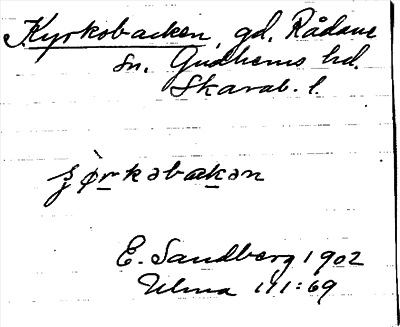 Kyrkobacken, gd. Rådene
sn. Gudhems hd.
Skarab. l.
ʂø̀rkəbakən
E. Sandberg 1902
Ulma 111:69